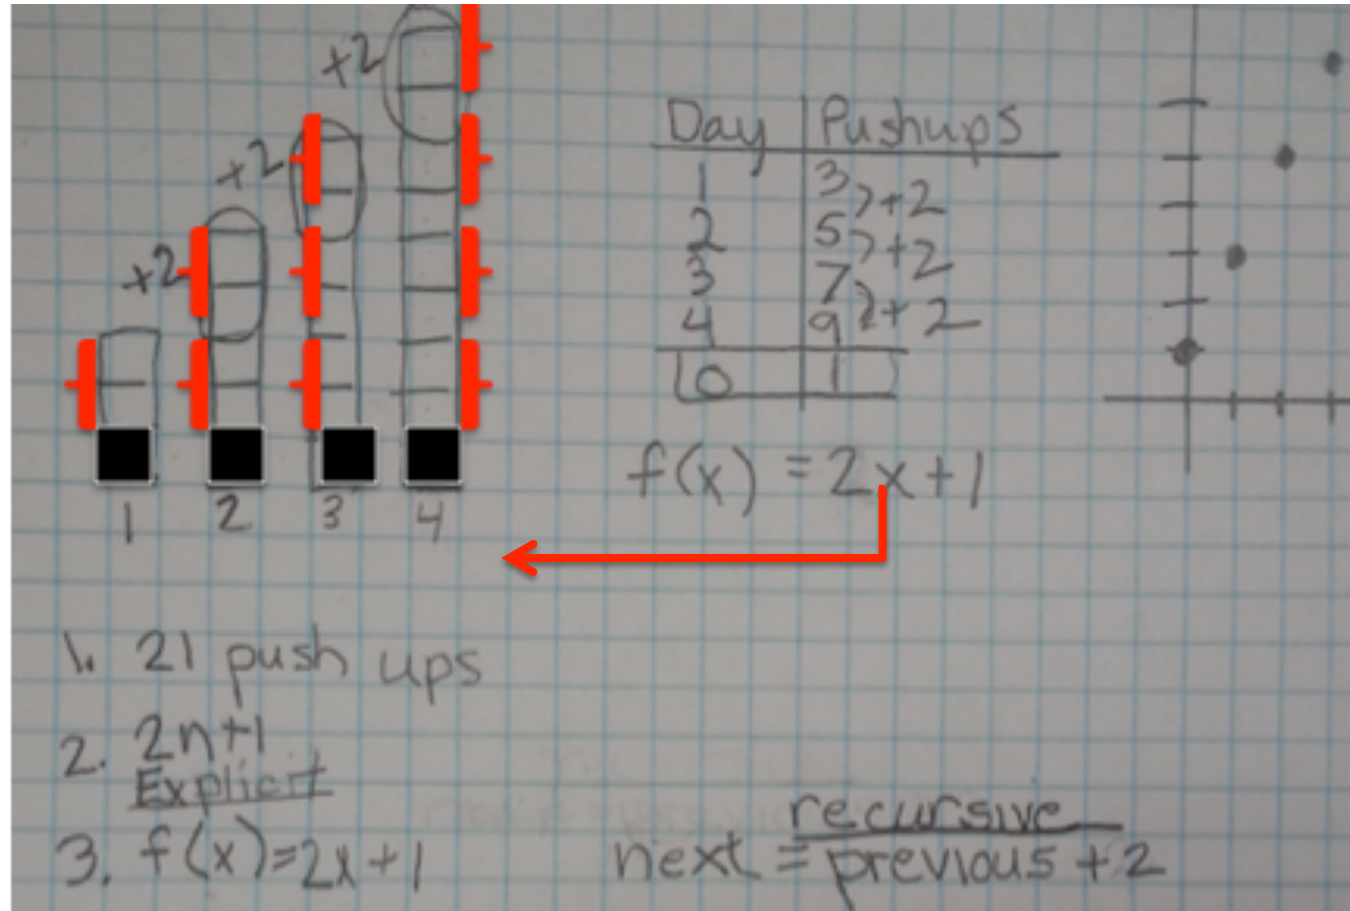 +2
+2
+2
1 2 3 4
Day Pushups
1 3
+2
2 5
+2
3 7
+2
4 9
0 1
f(x) = 2x+1
1. 21 push ups
2. 2n+1
Explicit
3. f(x)=2x+1
recursive
next = previous +2